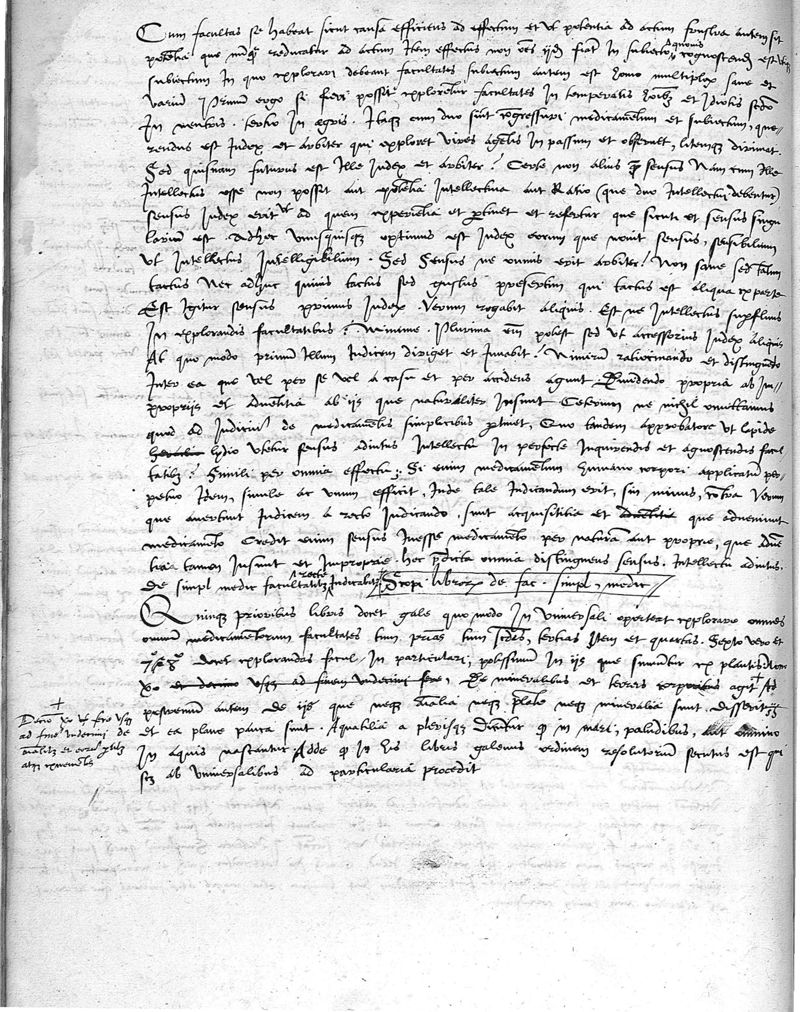 Cum facultas se habeat sicut causa efficiens ad effectum et ut potentia ad actum frustra autem sit
potentia que reducatur ad actum Item effectus non fiat In subiecto cognoscendum est
subiectum In quo explorari debeant facultates subiectum autem est homo multiplex sane et
varium Primum ergo si fieri possit explorentur facultates In temperatis et Idiotis
In neutris . tertio In egris . Itaque cum duo sint medicamentum et subiectum, que-
rendus est Iudex et arbiter qui exploret vires agentis In passum et obseruet, litemque dirimat.
Sed quisnam futurus est Ille Iudex et arbiter? Certe non alius sensus Nam cum Ille
Intellectus esse non possit aut potentia Intellectiua aut Ratio (que duo Intellectui debentur)
sensus Iudex erit ut ad quem experientia et pertinet et refertur que sicuti et sensus singu
larium est. Adhec unusquisque optimus est Iudex eorum que nouit sensus, sensibilium
ut Intellectus Intelligibilium . Sed Sensus ne omnis erit arbiter? Non sane sed tantum
tactus Nec adhuc quiuis tactus sed gustus presertim qui tactus est aliqua ex parte
Est Igitur sensus primus Iudex. Verum rogabit aliquis. Est ne Intellectus superfluus
In explorandis facultatibus? Minime. Plurima potest sed ut accessorius Iudex aliquis
At quo modo primum Illum Iudicem diriget et Iuuabit? Nimirum ratiocinando et distinguendo
Inter ea que vel per se vel a casu et per accidens agunt propria ab Im-
proprijs et aduentitia ab ijs que naturaliter Insunt Ceterum ne nihil omittamus
quod ad Iudicium de medicamentis simplicibus pertinet, Quo tandem approbatore ut lapide
lydio utetur sensus adiutus Intellectu In perfecte Inquirendis et agnoscendis facul-
tatibus? Simili per omnia effectu; Si enim medicamentum humano corpori applicatum per-
petuo Idem, simile ac unum efficit, Inde tale Iudicandum erit, sin minus, contra Verum
que auertunt Iudicem a recto Iudicando. sunt acquisititia et aduentitia que adueniunt
medicamento Credit enim sensus Inesse medicamento per naturam aut proprie, que aduen
titia tamen Insunt et Improprie. hec predicta omnia distinguens sensus. Intellectu adiutus.
De simpl medic facultatibus recte Iudicabit Scopi librorum de fac. simpl. medic
Quinque prioribus libris docet gale quo modo In vniuersali oportet explorare omnes
omnium medicamentorum facultates tum primas tum secundas, tertias Item et quartas. Sexto vero et
7º & 8º docet explorandas facul. In particulari, potissimum In ijs que sumuntur ex plantis
et decimo usque ad finem undecimi fere, De mineralibus et terris agit +
postremum autem de ijs que neque neque neque mineralia sunt . disserit
et ea plane pauca sunt. Aquatilia a plerisque dicuntur In mari, paludibus, aut omnino
In aquis nascantur Adde In his libris galenus ordinem resolutorium secutus est qui
ab vniuersalibus ad particularia procedit
+
Decimo fere usque
ad finem undecimi de
atque excrementis